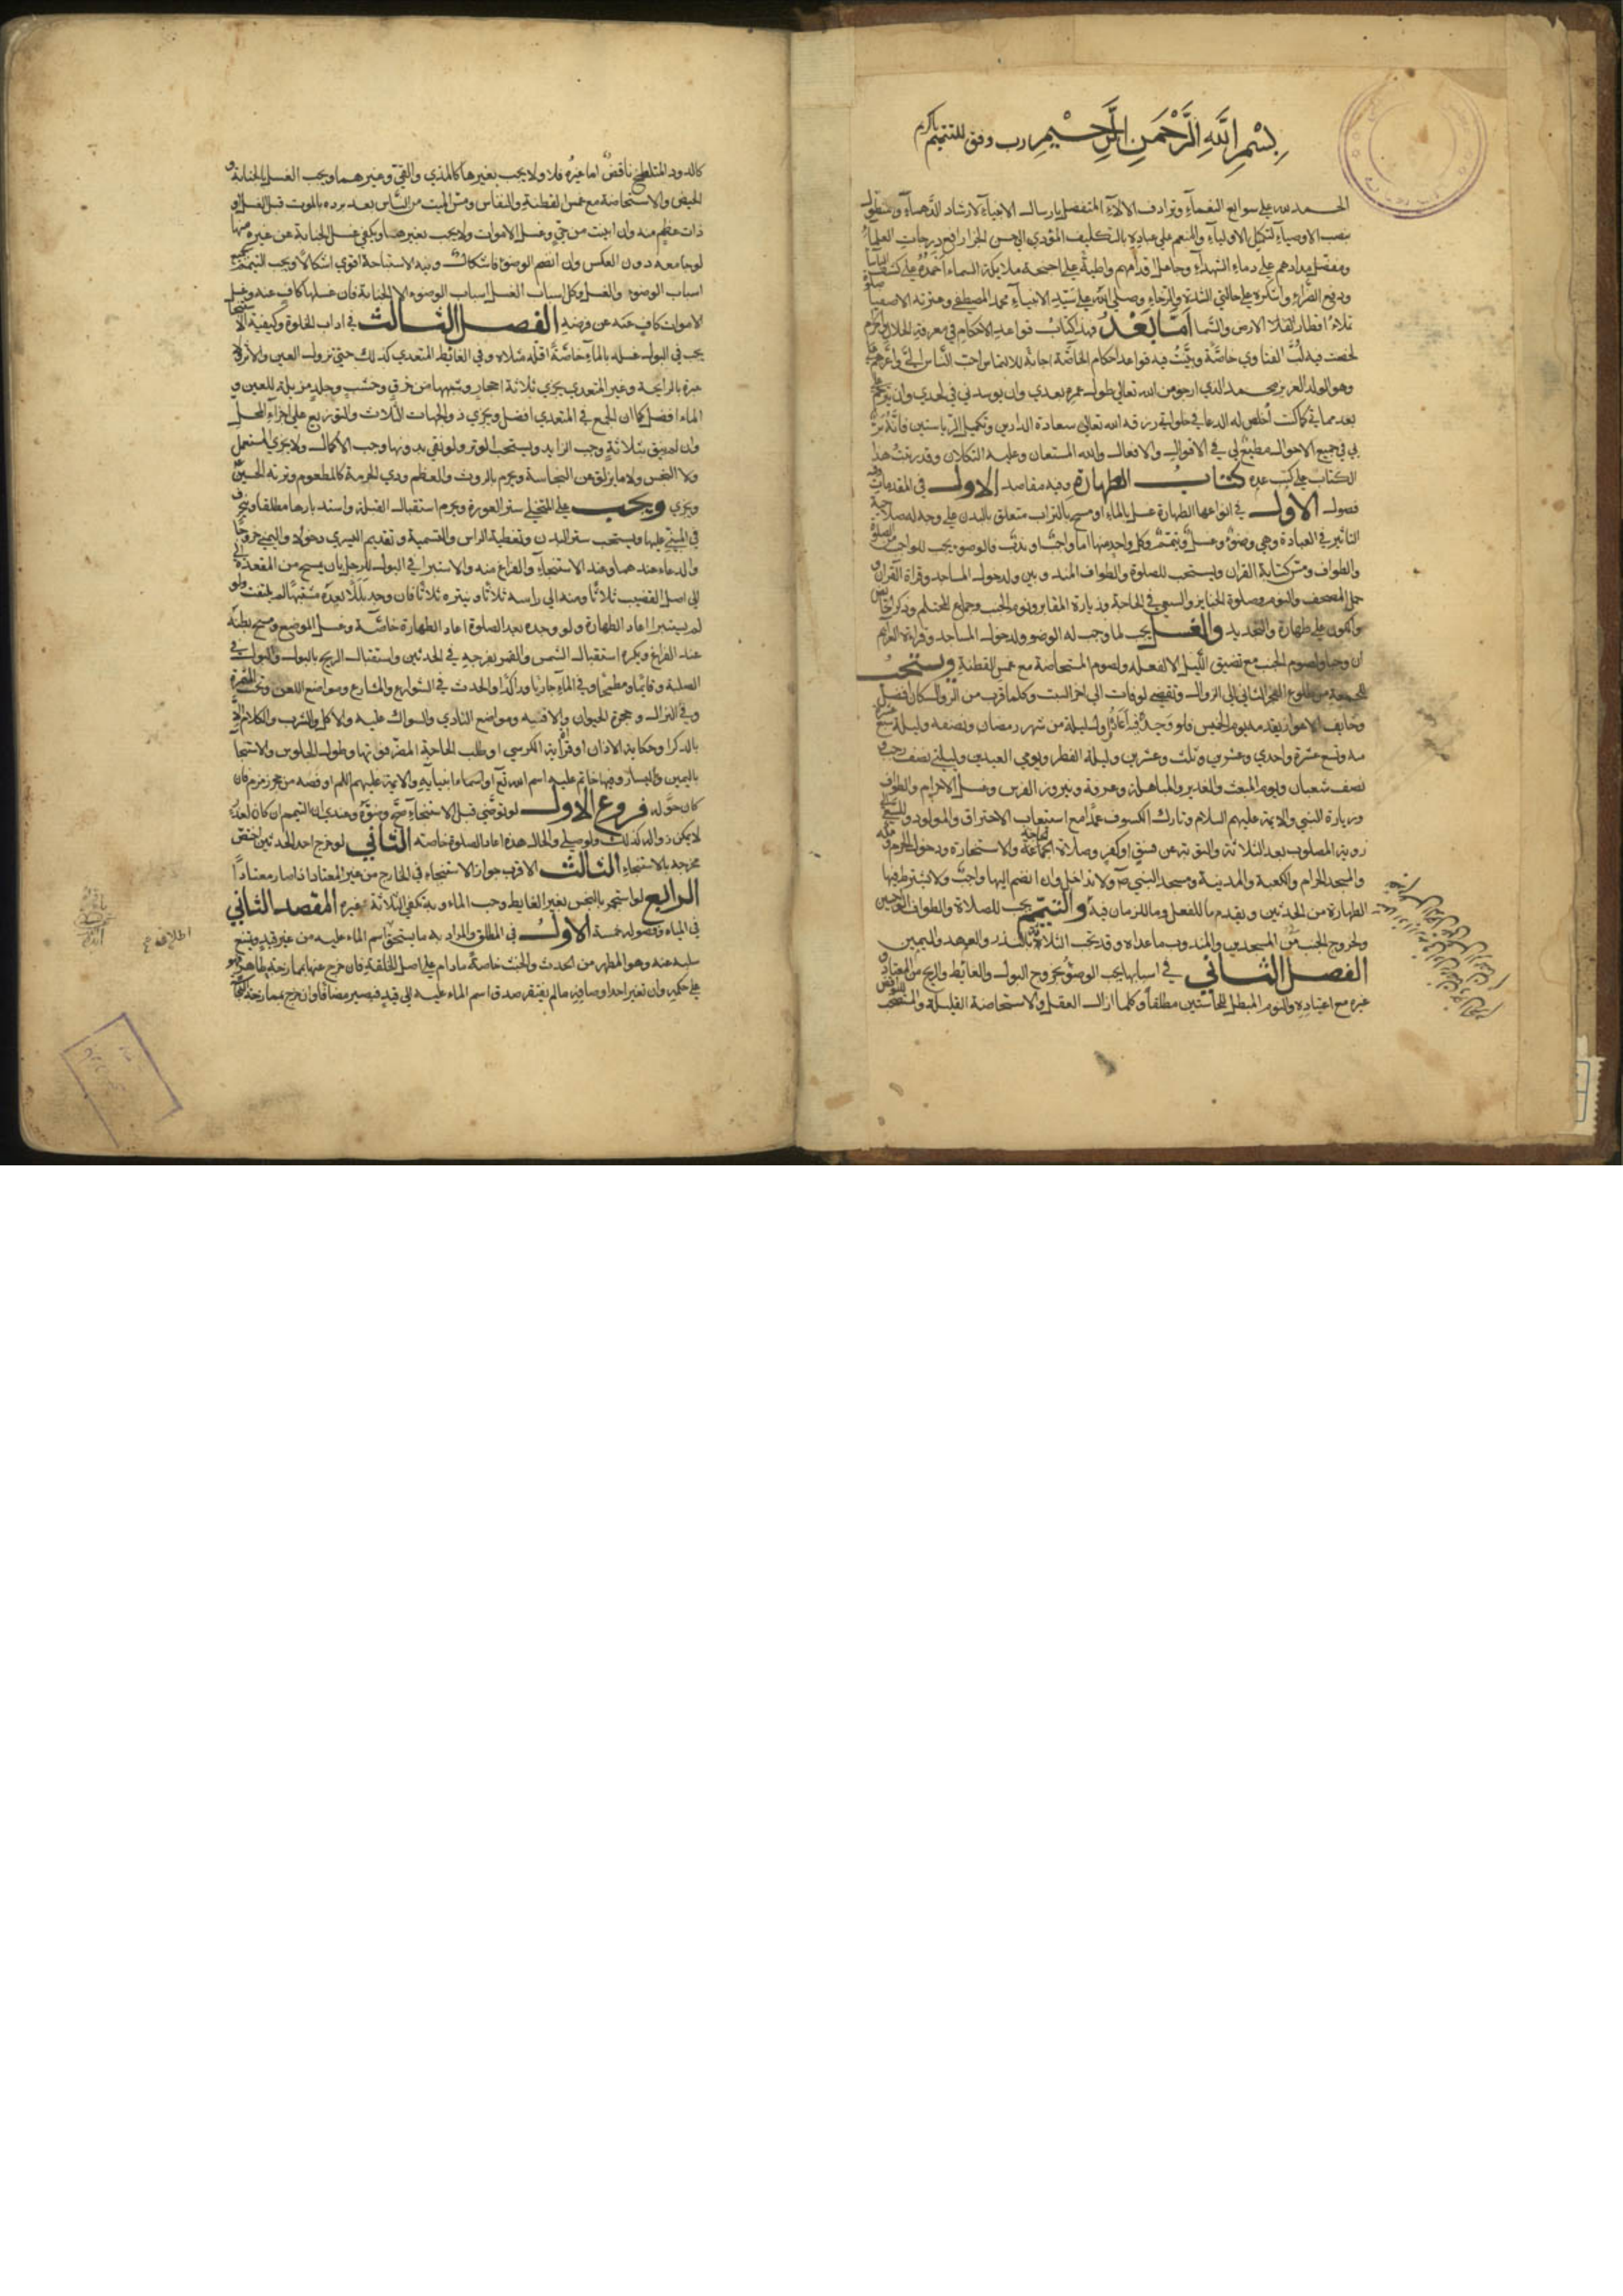 بِسْمِ اللّٰهِ الرَّحْمَنِ الرَّحِيْمِ رب وفق للتتميم يا كريم
الحمد لله على سوابغ النعماء وترادف الالاء المتفضل بارسال الانبياء لارشاد الدهماء
بنصب الاوصياء لتكميل الاولياء والمنعم على عباده بالتكليف المؤدي الى حسن الجزاء رافع درجات العلماء
ومفضل مدادهم على دماء الشهداء وجاعل اقدامهم واطية على اجنحة ملايكة السماء احمده على كشف الباساء
ودفع الضراء واشكره على حالتي الشدة والرخاء وصلى الله على سيد الانبياء محمد المصطفى وعترته الاصفيا
تملأ اقطار الارض والسما اَمّا بَعْدُ فهذا كتاب قواعد الاحكام في معرفة الحلال والحرام
لخصت فيه لب الفتاوي خاصة وبينت فيه قواعد احكام الخاصة اجابة لالتماس احب الناس الي واعزهم
وهو الولد العزيز محمد الذي ارجو من الله تعالى طول عمره بعدي وان يوسدني في لحدي وان يترحم
بعد مماتي كما كنت اخلص له الدعا في خلواتي رزقه الله تعالى سعادة الدارين وتكميل الرياستين فانه بر
بي في جميع الاحوال مطيع لي في الاقوال والافعال والله المستعان وعليه التكلان وقد رتبت هذا
الكتاب على كتب عدة كتاب الطهارة وفيه مقاصد الاول في المقدمات
فصول الاول في انواعها الطهارة غسل بالماء او مسح بالتراب متعلق بالبدن على وجه له صلاحية
التاثير في العبادة وهي وضوء وغسل وتيمم وكل واحد منها اما واجب او ندب فالوضوء يجب للواجب من الصلوة
والطواف ومس كتابة القران ويستحب للصلوة والطواف المندوبين ولدخول المساجد وقراة القران
حمل المصحف والنوم وصلوة الجنايز والسعي في الحاجة وزيارة المقابر ونوم الجنب وجماع المحتلم وذكر الحايض
والكون على طهارة والتجديد والغسل يجب لما وجب له الوضو ولدخول المساجد وقراءة العزايم
ان وجبا ولصوم الجنب مع تضيق الليل الا لفعله ولصوم المستحاضة مع غمس القطنة ويستحب
للجمعة من طلوع الفجر الثاني الى الزوال وتقضي لو فات الى اخر السبت وكلما قرب من الزوال كان افضل
وخايف الاعواز يقدمه يوم الخميس فلو وجد فيه اعاده واول ليلة من شهر رمضان ونصفه وليلة سبع عشرة
منه وتسع عشرة واحدي وعشرين وثلث وعشرين وليلة الفطر ويومي العيدين وليلتي نصف رجب
نصف شعبان ويوم المبعث والغدير والمباهلة وعرفة ونيروز الفرس وغسل الاحرام والطواف
وزيارة النبي والايمة عليهم السلام وتارك الكسوف عمدا مع استيعاب الاحتراق والمولود وللسعي الى
روية المصلوب بعد الثلاثة والتوبة عن فسق او كفر وصلاة الحاجة والاستخارة ودخول الحرم
والمسجد الحرام والكعبة والمدينة ومسجد النبي ص ولا تداخل وان انضم اليها واجب ولا يشترط فيها
الطهارة من الحدثين ويقدم ما للفعل وما للزمان فيه والتيمم يجب للصلاة والطواف الواجبين
ولخروج الجنب من المسجدين والمندوب ما عداه وقد تجب الثلاثة بالنذر والعهد واليمين
الفصل الثاني في اسبابها يجب الوضوء بخروج البول والغايط والريح من المعتاد
غيره مع اعتياده والنوم المبطل للحاستين مطلقا وكلما ازال العقل والاستحاضة القليلة والمستصحب
كالدود المتلطخ ناقض اما غيره فلا ولا يجب بغيرها كالمذي والقي وغيرهما ويجب الغسل بالجنابة
الحيض والاستحاضة مع غمس القطنة والنفاس ومس الميت من الناس بعد برده بالموت قبل الغسل
ذات عظم منه وان ابينت من حي وغسل الاموات ولا يجب بغيرها ويكفي غسل الجنابة عن غيره منها
لو جامعه دون العكس وان انضم الوضوء فاشكال ونية الاستباحة اقوي اشكالا ويجب التيمم بجميع
اسباب الوضوء والغسل وكل اسباب الغسل اسباب الوضوء الا الجنابة فان غسلها كاف عنه وغسل
الاموات كاف عن فرضه الفصل الثالث في اداب الخلوة وكيفية الاستنجا
يجب في البول غسله بالماء خاصة اقله مثلاه وفي الغايط المتعدي كذلك حتى تزول العين والاثر ولا
عبرة بالرايحة وغير المتعدي يجزي ثلاثة احجار وشبهها من خرق وخشب وجلد مزيلة للعين و
الماء افضل كما ان الجمع في المتعدي افضل ويجزي ذو الجهات الثلاث والتوزيع على اجزاء المحل
وان لم ينق بثلاثة وجب الزايد ويستحب الوتر ولو نقي بدونها وجب الاكمال ولا يجزي المستعمل
ولا النجس ولا ما يزلق عن النجاسة ويحرم بالروث والعظم وذي الحرمة كالمطعوم وتربة الحسين
ويجزي ويجب على المتخلي ستر العورة ويحرم استقبال القبلة واستدبارها مطلقا
في المبني عليها ويستحب ستر البدن وتغطية الراس والتسمية وتقديم اليسري دخولا واليمني خروجا
والدعاء عندهما وعند الاستنجاء والفراغ منه والاستبرا في البول للرجل بان يمسح من المقعدة
الى اصل القضيب ثلاثا ومنه الى راسه ثلاثا وينتره ثلاثا فان وجد بللا بعده مشتبها لم يلتفت ولو
لم يستبرا اعاد الطهارة ولو وجده بعد الصلوة اعاد الطهارة خاصة وغسل الموضع ومسح بطنه
عند الفراغ ويكره استقبال الشمس والقمر بفرجه في الحدثين واستقبال الريح بالبول والبول في
الصلبة وقايما ومطمحا وفي الماء جاريا وراكدا والحدث في الشوارع والمشارع ومواضع اللعن وتحت المثمرة
وفي النزال وجحرة الحيوان والافنية ومواضع التاذي والسواك عليه والاكل والشرب والكلام الا
بالذكر او حكاية الاذان او قراة اية الكرسي او طلب الحاجة المضر فوتها وطول الجلوس والاستنجا
باليمين واليسار وفيها خاتم عليه اسم الله تع او اسماء انبيايه والايمة عليهم السلم او فصه من حجر زمزم فان
كان حوله فروع الاول لو توضي قبل الاستنجاء صح وضوءه وعندي ان التيمم ان كان لعذر
لا يمكن زواله كذلك ولو صلى والحال هذه اعاد الصلوة خاصة الثاني لو خرج احد الحدثين اختص
مخرجه بالاستنجاء الثالث الاقرب جواز الاستنجاء في الخارج من غير المعتاد اذا صار معتادا
الرابع لو استجمر بالنجس بغير الغايط وجب الماء وبه تكفي الثلاثة غيره المقصد الثاني
في المياه وفصوله خمسة الاول في المطلق والمراد به ما يستحق اسم الماء عليه من غير قيد ويمتنع
سلبه عنه وهو المطهر من الحدث والخبث خاصة ما دام على اصل الخلقة فان خرج عنها بممازجة طاهر فهو
على حكمه وان تغير احد اوصافه ما لم يفتقر صدق اسم الماء عليه الى قيد فيصير مضافا وان خرج بممازجة النجاسة